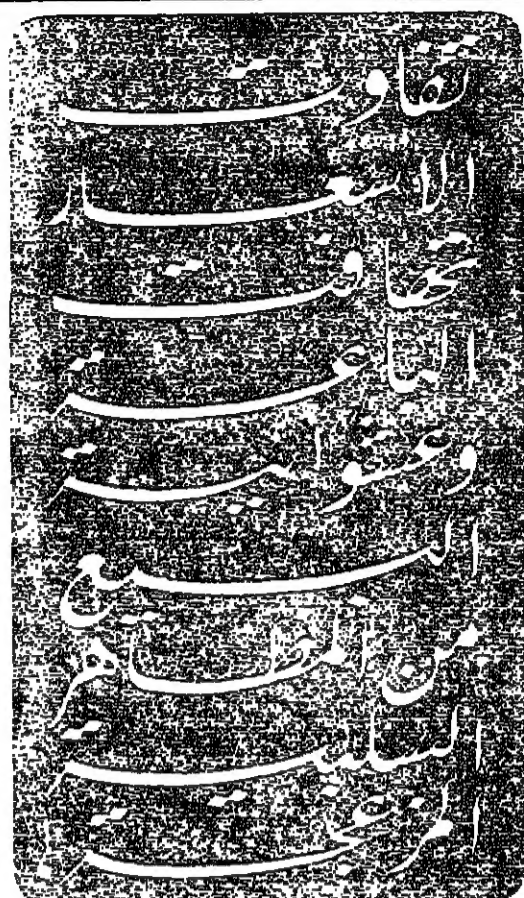 تفاوت
الاسعار
تهافت
الباعة
وعشوائية
البيع
من المظاهر
السلبية
المزعجة